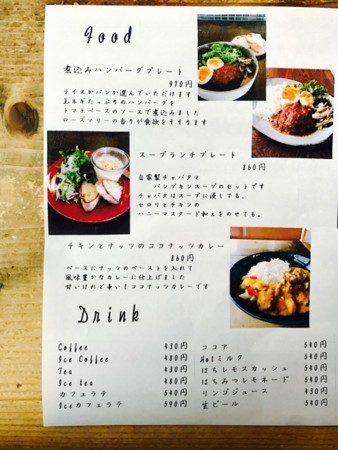 Food
煮込みハンバーグプレート
970円
ライスかパンか選んでいただけます
玉ネギたっぷりのハンバーグを
トマトベースのソースで煮込みました
ローズマリーの香りが食欲をそそります
スープランチプレート
860円
自家製チャバタと
パンプキンスープのセットです
チャバタはスープに浸しても。
セロリとチキンの
ハニーマスタード和えをのせても。
チキンとナッツのココナッツカレー
860円
ベースにナッツのペーストを入れて
風味豊かなカレーに仕上げました
甘いけれど辛い!ココナッツカレーです
Drink
Coffee 430円
Ice Coffee 480円
Tea 430円
Ice tea 480円
カフェラテ 540円
Iceカフェラテ 590円
ココア 540円
Hotミルク 540円
はちレモスカッシュ 540円
はちみつレモネード 540円
リンゴジュース 430円
生ビール 540円